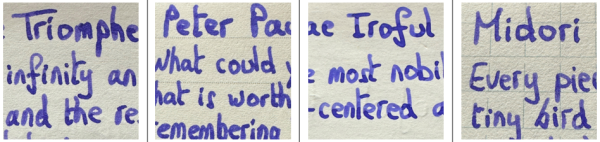 Triomphe
infinity an
and the re
Peter Pau
What could
hat is worth
emembering
ae Iroful
e most nobil
-centered a
Midori
Every pie
tiny bird